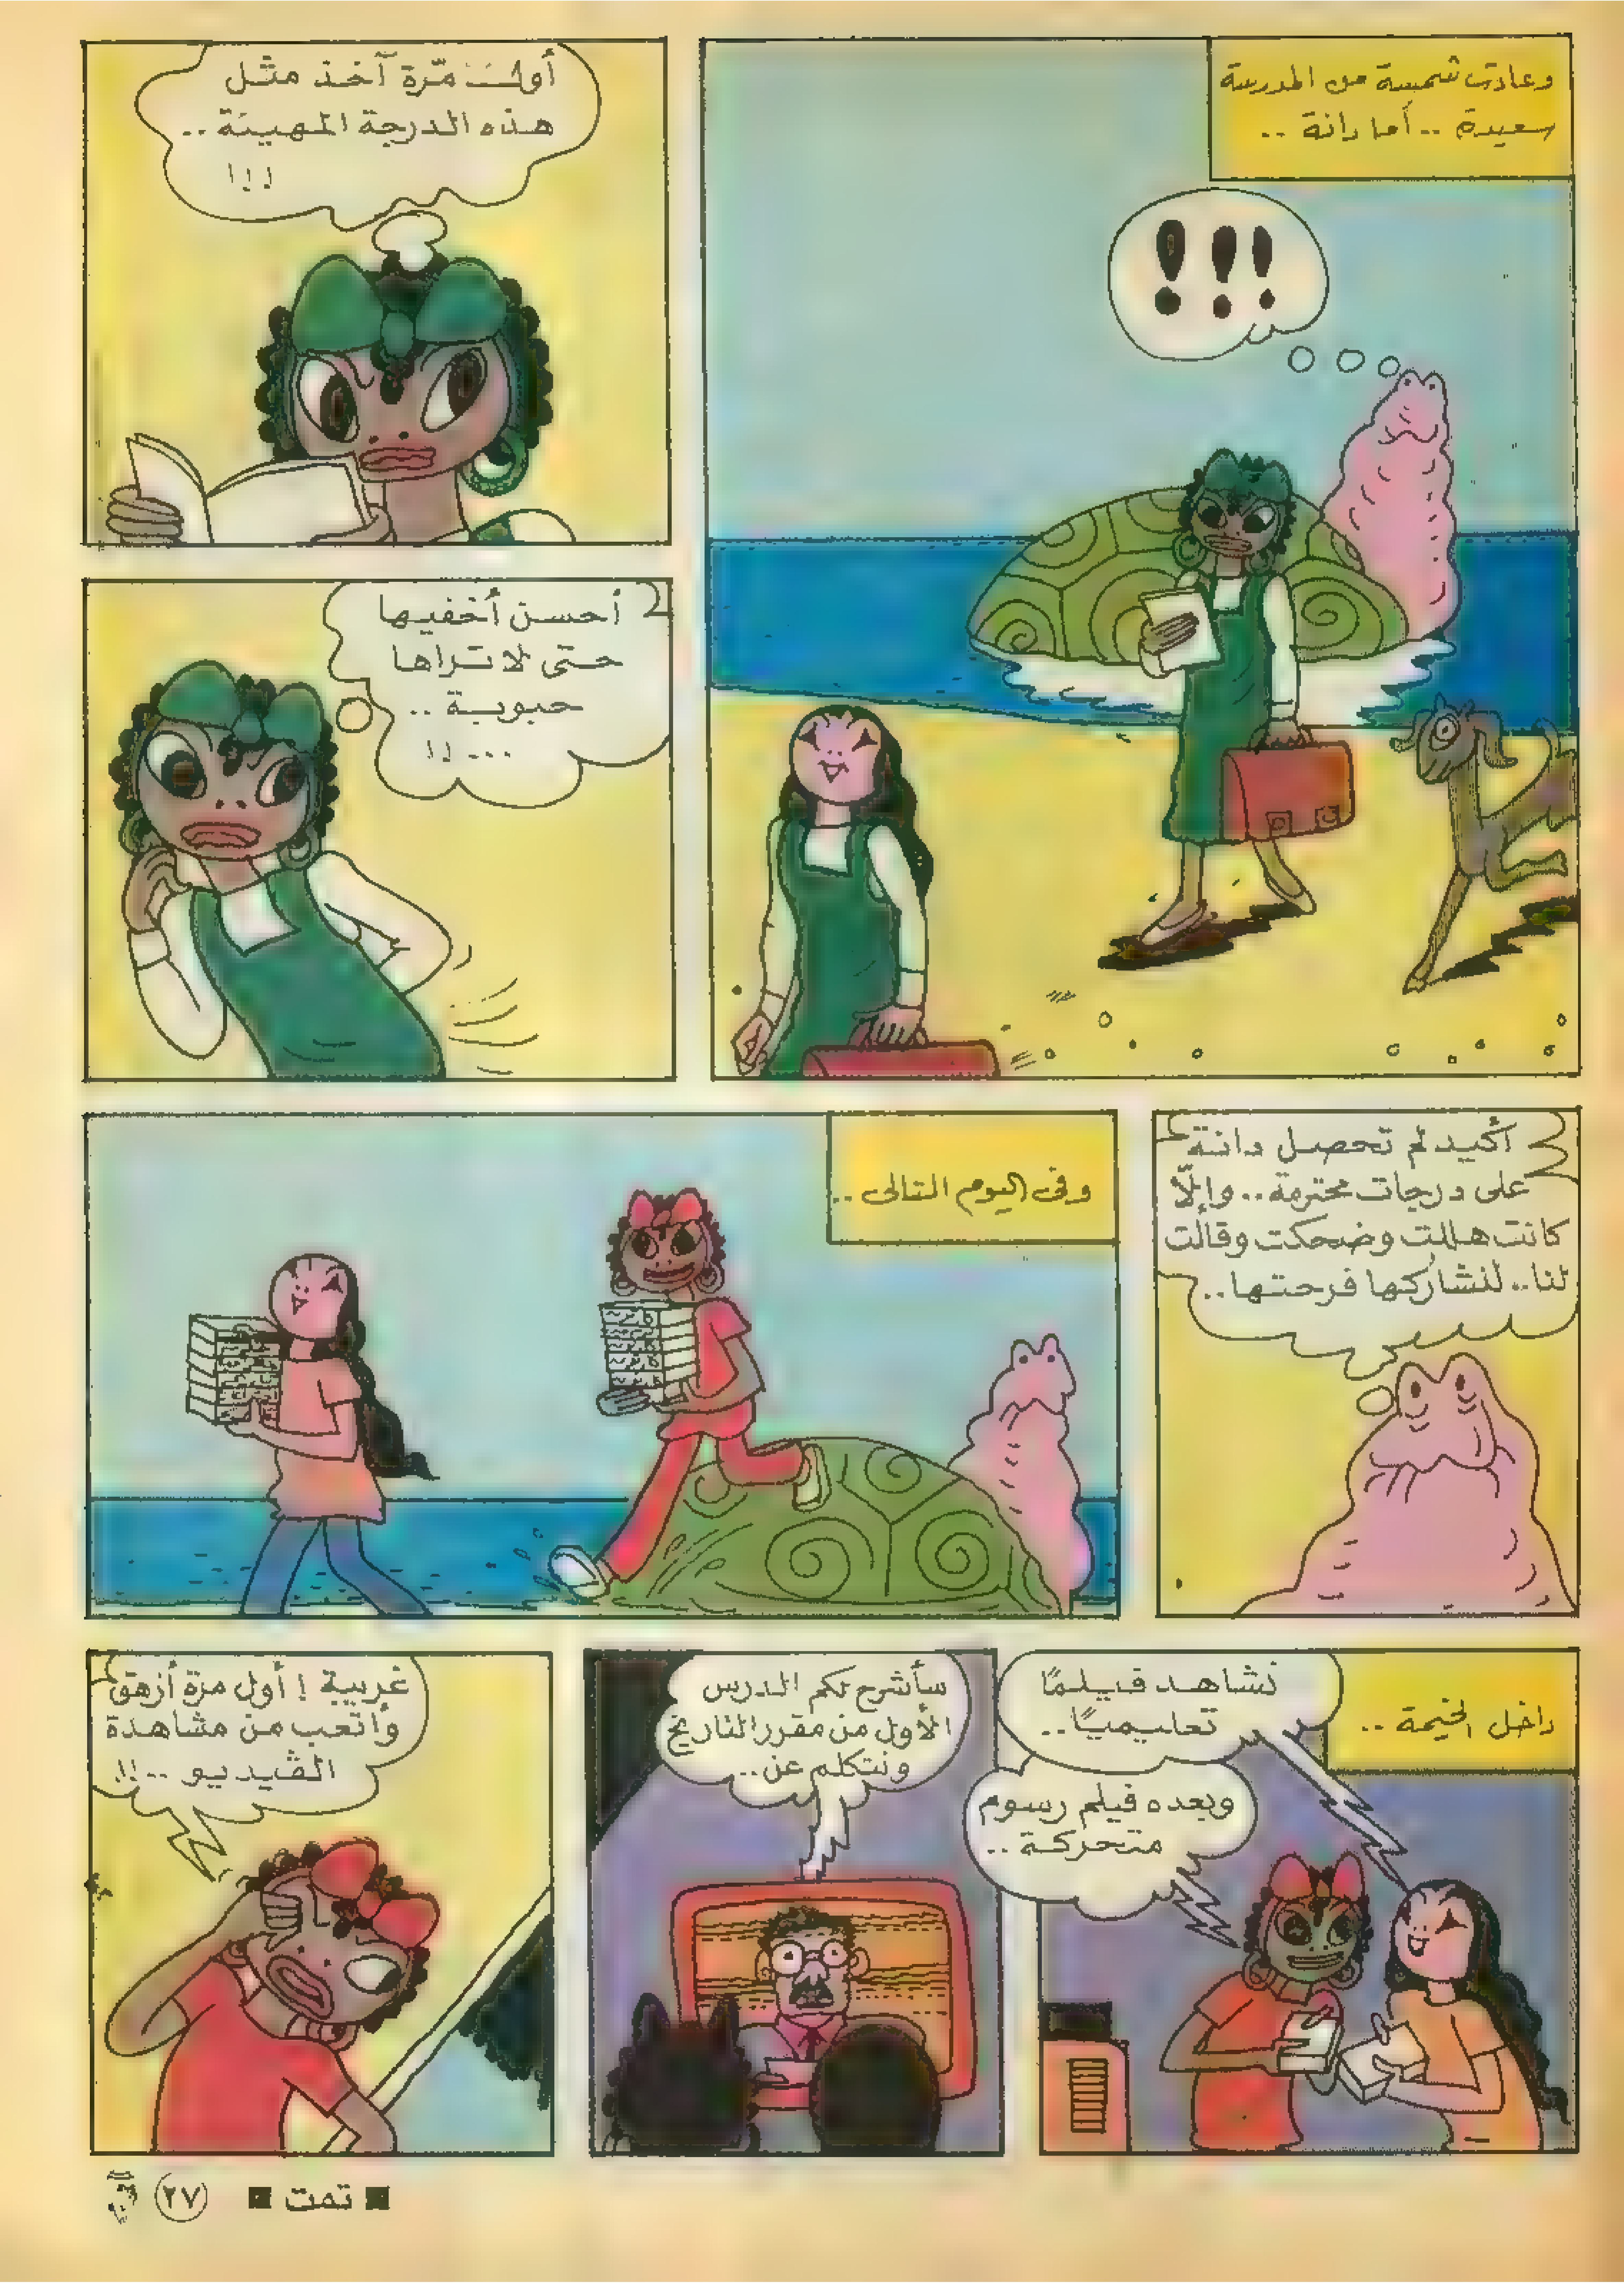 وعادت شمسة من المدرسة
سعيدة .. أما دانة ..
!!!
أول مرّة آخذ مثل
هذه الدرجة المهينة ..
!!!
أحسن أخفيها
حتى لا تراها
حبوبة ..
... !!
أكيد لم تحصل دانة
على درجات محترمة .. وإلاّ
كانت هللت وضحكت وقالت
لنا .. لنشاركها فرحتها ..
وفى اليوم التالى ..
داخل الخيمة ..
نشاهد فيلمًا
تعليميًا ..
وبعده فيلم رسوم
متحركة ..
سأشرح لكم الدرس
الأول من مقرر التاريخ
ونتكلم عن ..
غريبة ! أول مرة أزهق
وأتعب من مشاهدة
الڤيديو .. !!
■ تمت ■
٢٧